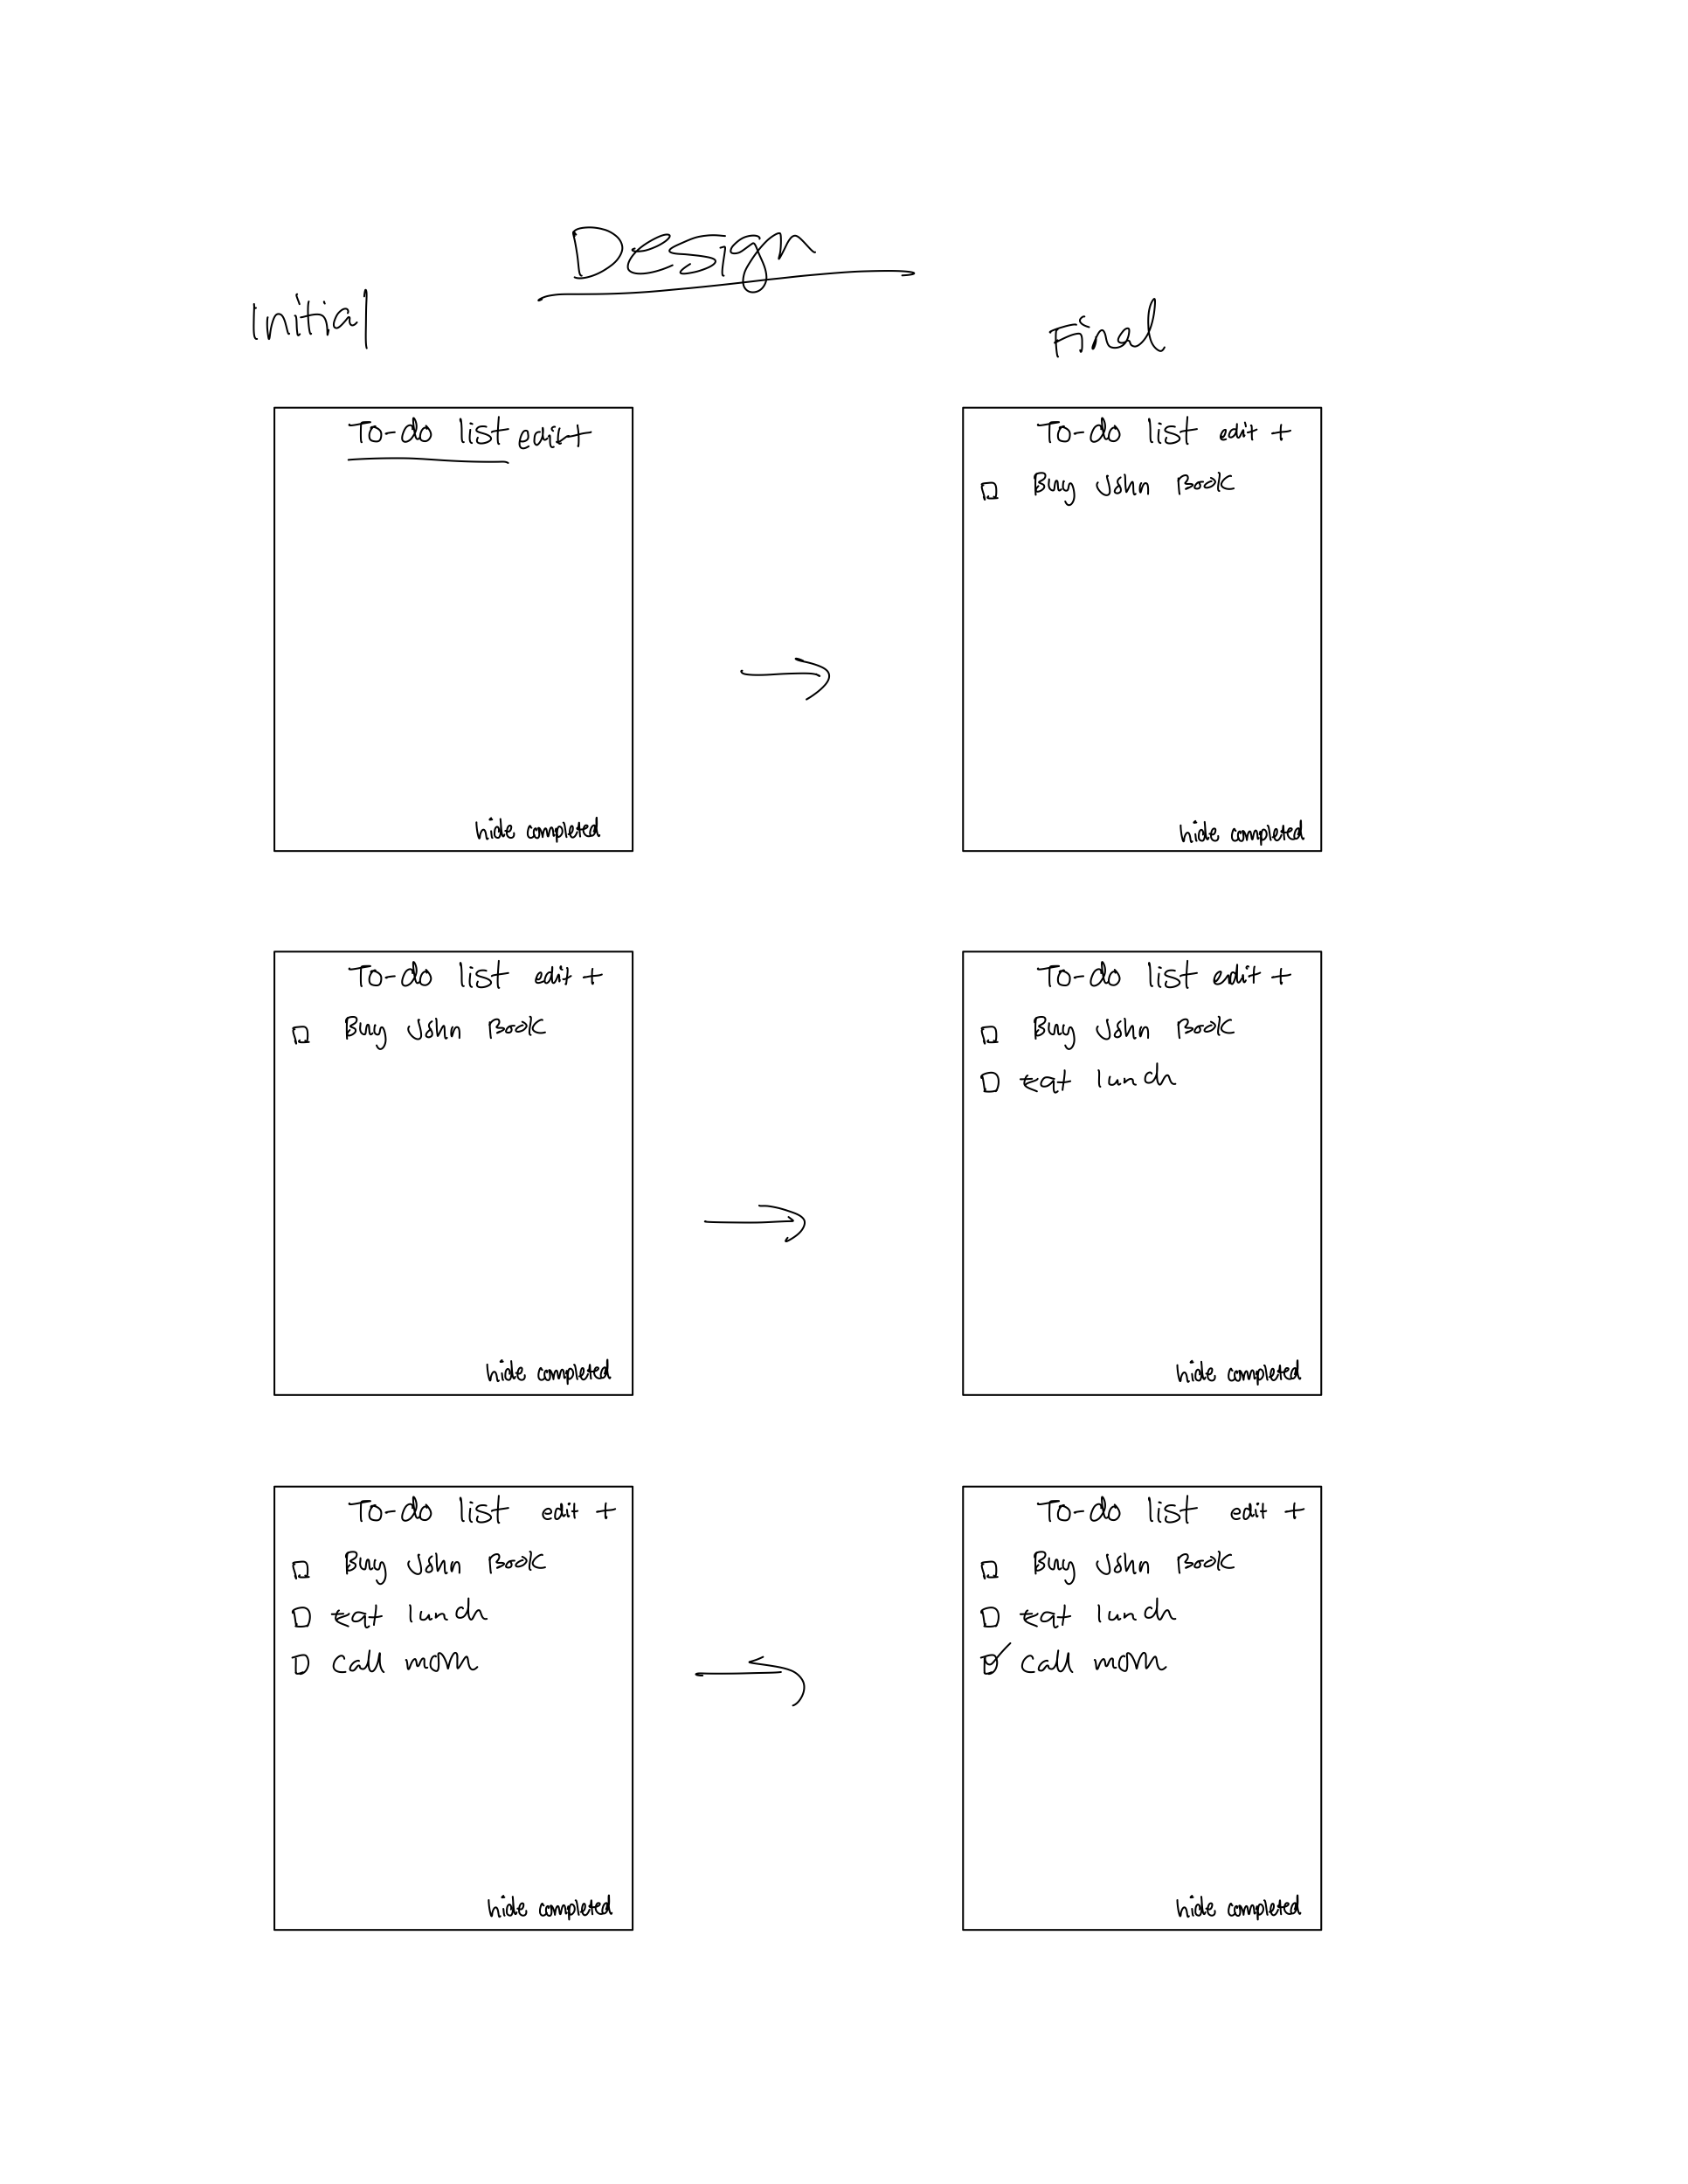 Design
Initial
Final
To-do list edit +
hide completed
To-do list edit +
Buy John Book
hide completed
To-do list edit +
Buy John Book
hide completed
To-do list edit +
Buy John Book
Eat lunch
hide completed
To-do list edit +
Buy John Book
Eat lunch
call mom
hide completed
To-do list edit +
Buy John Book
Eat lunch
call mom
hide completed